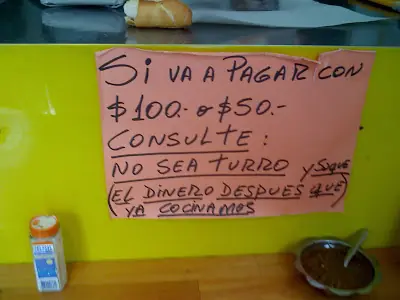 SI VA A PAGAR CON
$100.- o $50.-
CONSULTE:
NO SEA TURRO y SAQUE
(EL DINERO DESPUES QUE
YA COCINAMOS